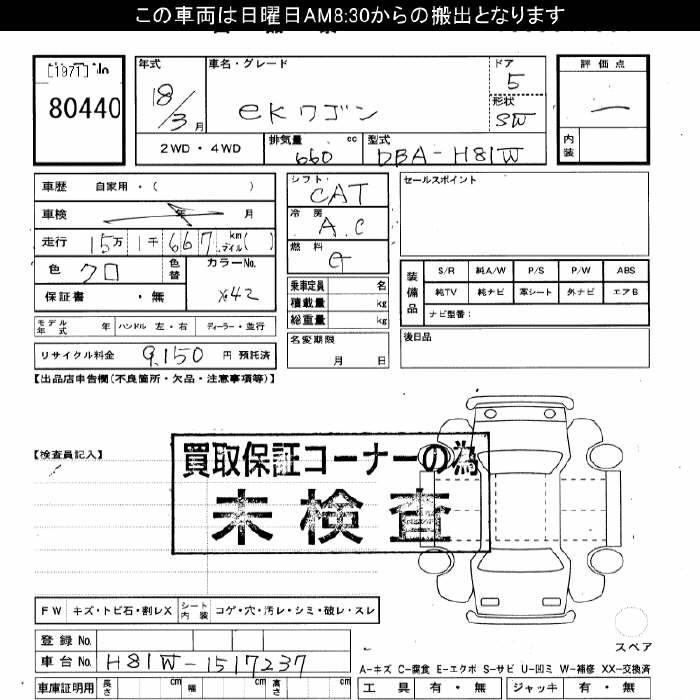 この車両は日曜日AM8:30からの搬出となります
[1971] No
80440
年式 18/3 月
車名・グレード eKワゴン
ドア 5
形状 SW
評価点 —
内装
2WD・4WD
排気量 660 cc
型式 DBA-H81W
車歴 自家用・( )
車検 年 月
走行 15万 1千 667 km マイル ( )
色 クロ 色替
カラーNo. X42
保証書 ・無
モデル年式 年 ハンドル 左・右 ディーラー・並行
リサイクル料金 9,150 円 預託済
シフト CAT
冷房 A.C
燃料 G
乗車定員 名
積載量 kg
総重量 kg
名変期限 月 日
セールスポイント
装備品
S/R 純A/W P/S P/W ABS
純TV 純ナビ 革シート 外ナビ エアB
ナビ型番:
後日品
【出品店申告欄(不良箇所・欠品・注意事項等)】
【検査員記入】
買取保証コーナーの為
未検査
FW キズ・トビ石・割レX シート内装 コゲ・穴・汚レ・シミ・破レ・スレ
登録No.
車台No. H81W-1517237
車庫証明用 長さ cm 幅 cm 高さ cm
スペア
A-キズ C-腐食 E-エクボ S-サビ U-凹ミ W-補修 XX-交換済
工具 有・無 ジャッキ 有・無